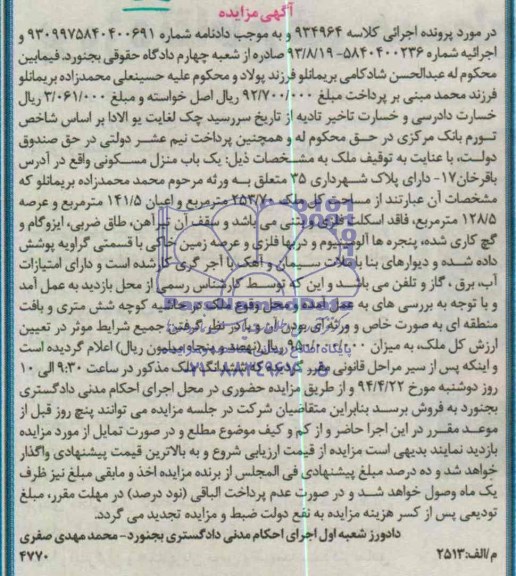 آگهی مزایده
در مورد پرونده اجرائی کلاسه ۹۳۴۹۶۴ و به موجب دادنامه شماره ۹۳۰۹۹۷۵۸۴۰۴۰۰۶۹۱ و
اجرائیه شماره ۵۸۴۰۴۰۰۲۳۶-۹۳/۸/۱۹ صادره از شعبه چهارم دادگاه حقوقی بجنورد. فیمابین
محکوم له عبدالحسن شادکامی بریمانلو فرزند پولاد و محکوم علیه حسینعلی محمدزاده بریمانلو
فرزند محمد مبنی بر پرداخت مبلغ ۹۲/۷۰۰/۰۰۰ ریال اصل خواسته و مبلغ ۳/۰۶۱/۰۰۰ ریال
خسارت دادرسی و خسارت تاخیر تادیه از تاریخ سررسید چک لغایت یو الادا بر اساس شاخص
تورم بانک مرکزی در حق محکوم له و همچنین پرداخت نیم عشر دولتی در حق صندوق
دولت، با عنایت به توقیف ملک به مشخصات ذیل: یک باب منزل مسکونی واقع در آدرس
باقرخان۱۷- دارای پلاک شهرداری ۳۵ متعلق به ورثه مرحوم محمد محمدزاده بریمانلو که
مشخصات آن عبارتند از مساحت کل ملک ۲۵۳/۷۰ مترمربع و اعیان ۱۴۱/۵ مترمربع و عرصه
۱۲۸/۵ مترمربع، فاقد اسکلت فلزی و بتنی می باشد و سقف آن تیرآهن، طاق ضربی، ایزوگام و
گچ کاری شده، پنجره ها آلومینیوم و دربها فلزی و عرصه زمین خاکی با قسمتی گراویه پوشش
داده شده و دیوارهای بنا با ملات سیمان و آهک با آجر گری کار شده است و دارای امتیازات
آب، برق، گاز و تلفن می باشد و این که توسط کارشناس رسمی از محل بازدید به عمل آمد
و با توجه به بررسی های به عمل آمده و محل وقوع ملک در حاشیه کوچه شش متری و بافت
منطقه ای به صورت خاص و ورثه ای بودن آن و با در نظر گرفتن جمیع شرایط موثر در تعیین
ارزش کل ملک، به میزان ۹۵۰/۰۰۰/۰۰۰ ریال (نهصد و پنجاه میلیون ریال) اعلام گردیده است
و اینکه پس از سیر مراحل قانونی مقرر گردید که ششدانگ ملک مذکور در ساعت ۹:۳۰ الی ۱۰
روز دوشنبه مورخ ۹۴/۴/۲۲ و از طریق مزایده حضوری در محل اجرای احکام مدنی دادگستری
بجنورد به فروش برسد بنابراین متقاضیان شرکت در جلسه مزایده می توانند پنج روز قبل از
موعد مقرر در این اجرا حاضر و از کم و کیف موضوع مطلع و در صورت تمایل از مورد مزایده
بازدید نمایند بدیهی است مزایده از قیمت ارزیابی شروع و به بالاترین قیمت پیشنهادی واگذار
خواهد شد و ده درصد مبلغ پیشنهادی فی المجلس از برنده مزایده اخذ و مابقی مبلغ نیز ظرف
یک ماه وصول خواهد شد و در صورت عدم پرداخت الباقی (نود درصد) در مهلت مقرر، مبلغ
تودیعی پس از کسر هزینه مزایده به نفع دولت ضبط و مزایده تجدید می گردد.
دادورز شعبه اول اجرای احکام مدنی دادگستری بجنورد- محمد مهدی صفری
م/الف:۲۵۱۳ ۴۷۷۰